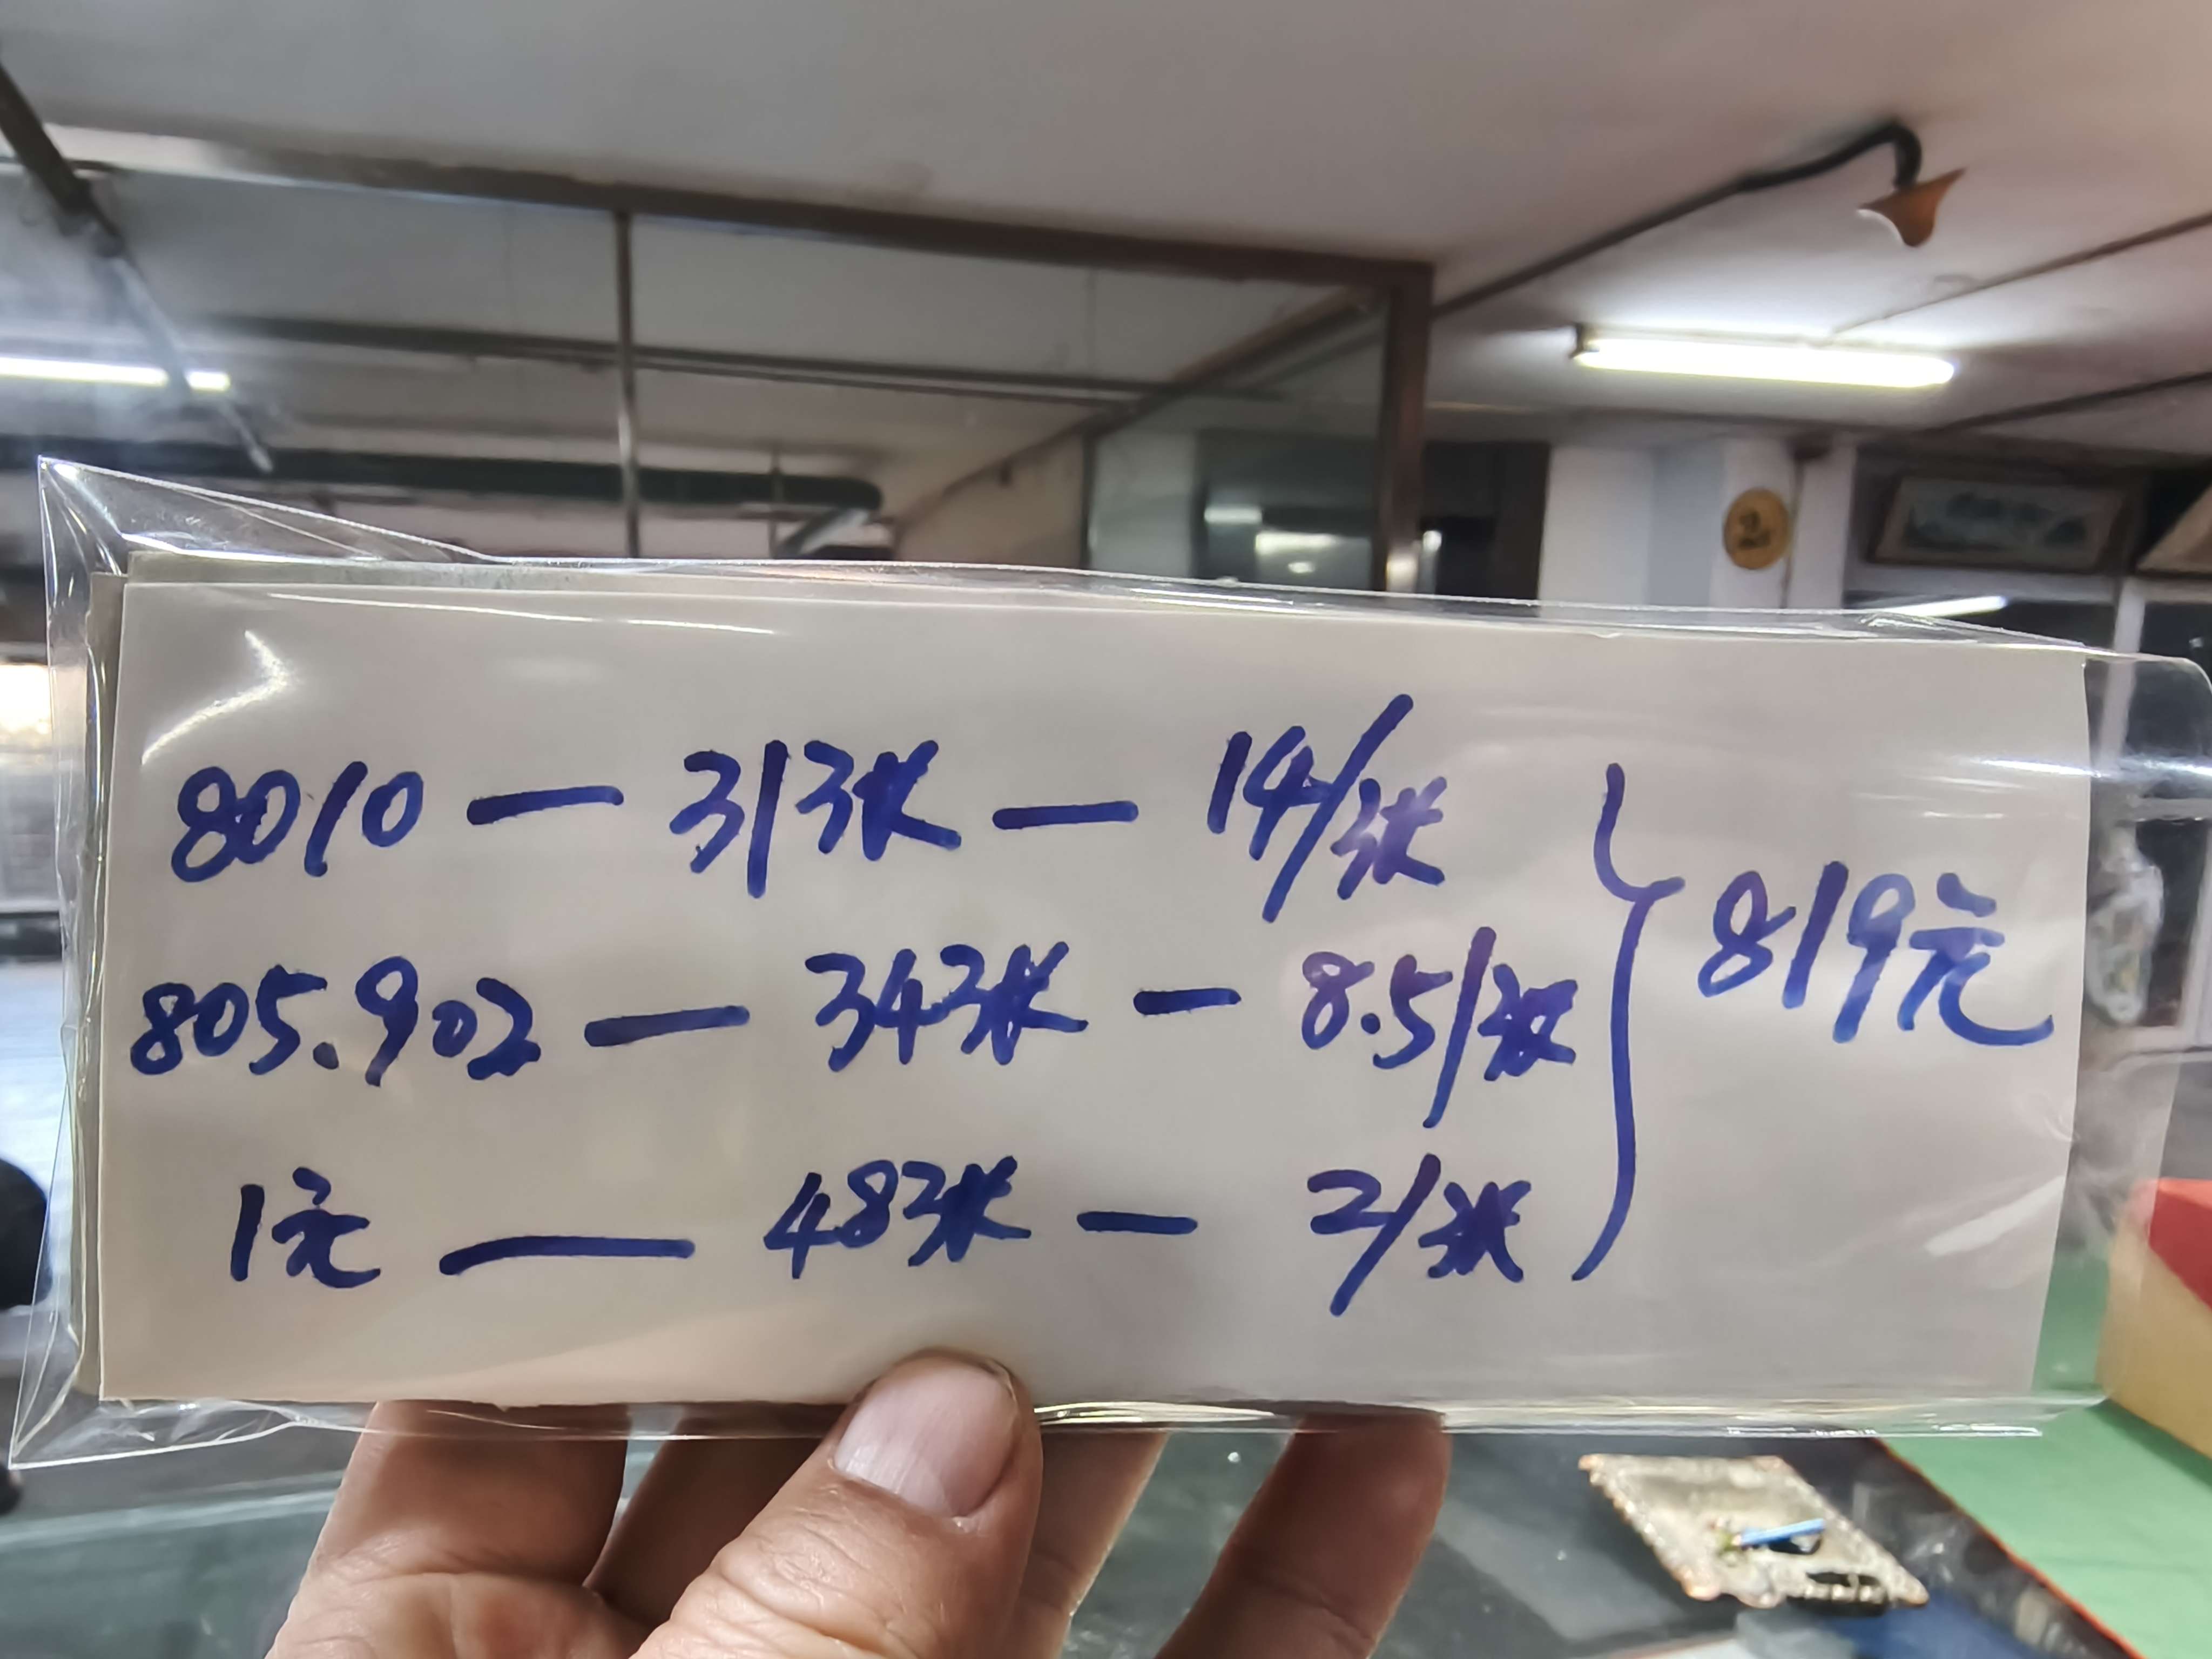 2
8010 — 31张 — 14/张
805.902 — 34张 — 8.5/张
1元 — 48张 — 2/张
819元